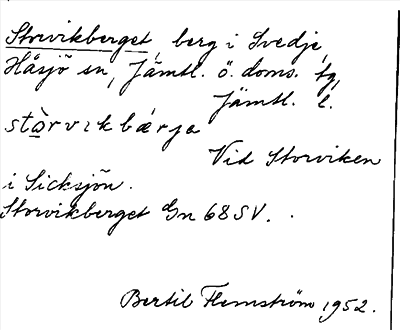 Storvikberget, berg i Svedje,
Håsjö sn, Jämtl. ö. doms. tg,
Jämtl. l.
stòrvıkbǽrja
Vid Storviken
i Sicksjön.
Storvikberget Gn 68 SV.
Bertil Flemström 1952.